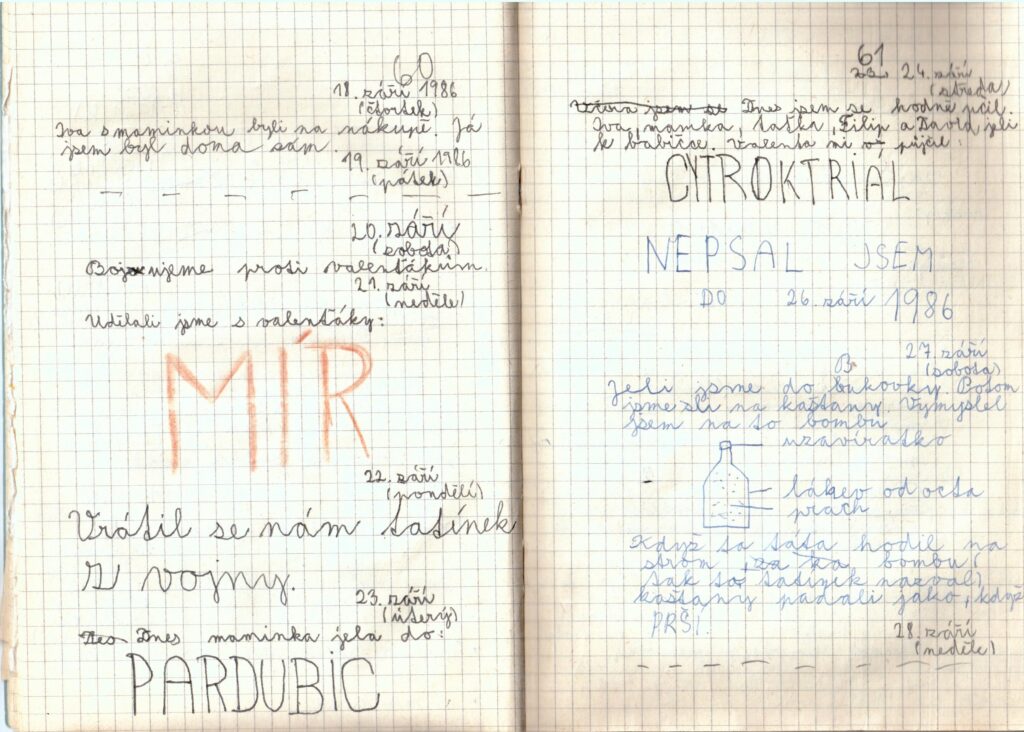 60
18. září 1986
(čtvrtek)
Iva s maminkou byli na nákupě. Já
jsem byl doma sám.
19. září 1986
(pátek)
— — — — — — —
20. září
(sobota)
Bojujeme proti valenťákům.
21. září
(neděle)
Udělali jsme s valenťáky:
MÍR
22. září
(pondělí)
Vrátil se nám tatínek
z vojny.
23. září
(úterý)
Dnes maminka jela do:
PARDUBIC
61
24. září
(středa)
Dnes jsem se hodně učil.
Iva, mamka, taťka, Filip a David jeli
k babičce. Valenta mi půjčil:
CYTROKTRIÁL
NEPSAL JSEM
DO 26. září 1986
27. září
(sobota)
Jeli jsme do Bukovky. Potom
jsme šli na kaštany. Vymyslel
jsem na to bombu
uzavíratko
láhev od octa
prach
Když ta táta hodil na
strom, bombu
tak to tatínek nazval,
kaštany padali jako, když
PRŠÍ.
28. září
(neděle)
— — — — — — —